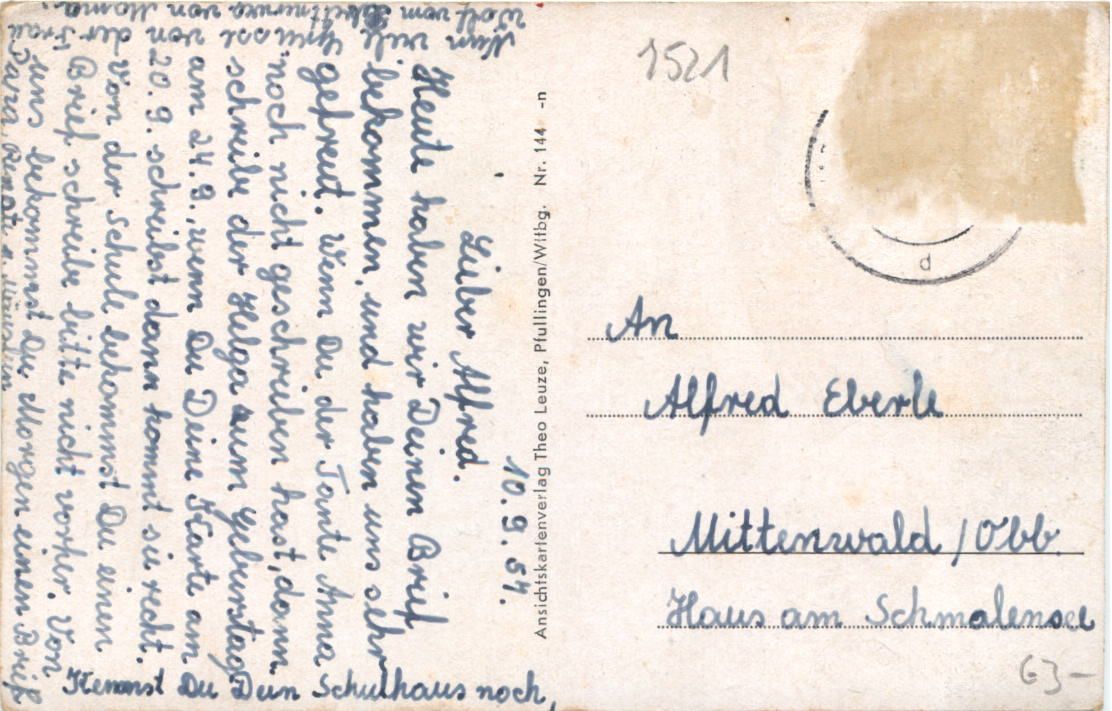 10.9.54.
Lieber Alfred.
Heute haben wir Deinen Brief
bekommen, und haben uns sehr
gefreut. Wenn Du der Tante Anna
noch nicht geschrieben hast, dann
schreibe der Helga zum Geburstag
am 24.9., wenn Du Deine Karte am
20.9. schreibst dann kommt sie recht.
Von der Schule bekommst Du einen
Brief schreibe bitte nicht vorher. Von
uns bekommst Du Morgen einen Brief
Nun viele Grüsse von der Frau
Wolf vom von Mama.
Kennst Du Dein Schulhaus noch,
Ansichtskartenverlag Theo Leuze, Pfullingen/Wttbg. Nr. 144 -n
1521
d
An
Alfred Eberle
Mittenwald /Obb.
Haus am Schmalensee
63-